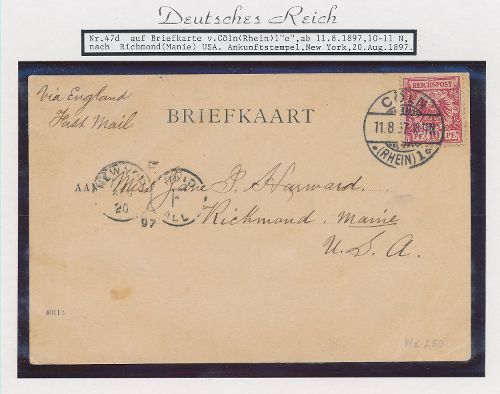 Deutsches Reich
Nr.47d auf Briefkarte v.Cöln(Rhein)1"e",ab 11.8.1897,10-11 N,
nach Richmond(Manie) USA. Ankunftstempel,New York,20.Aug.1897.
Via England
Fast Mail
BRIEFKAART
REICHSPOST
CÖLN
11.8.97
(RHEIN) 1e
AAN
Miss Jane P. Harward
Richmond. Maine
U. S. A.
NEW
AUG
20
97
PAID
ALL
4011 a
47d 250